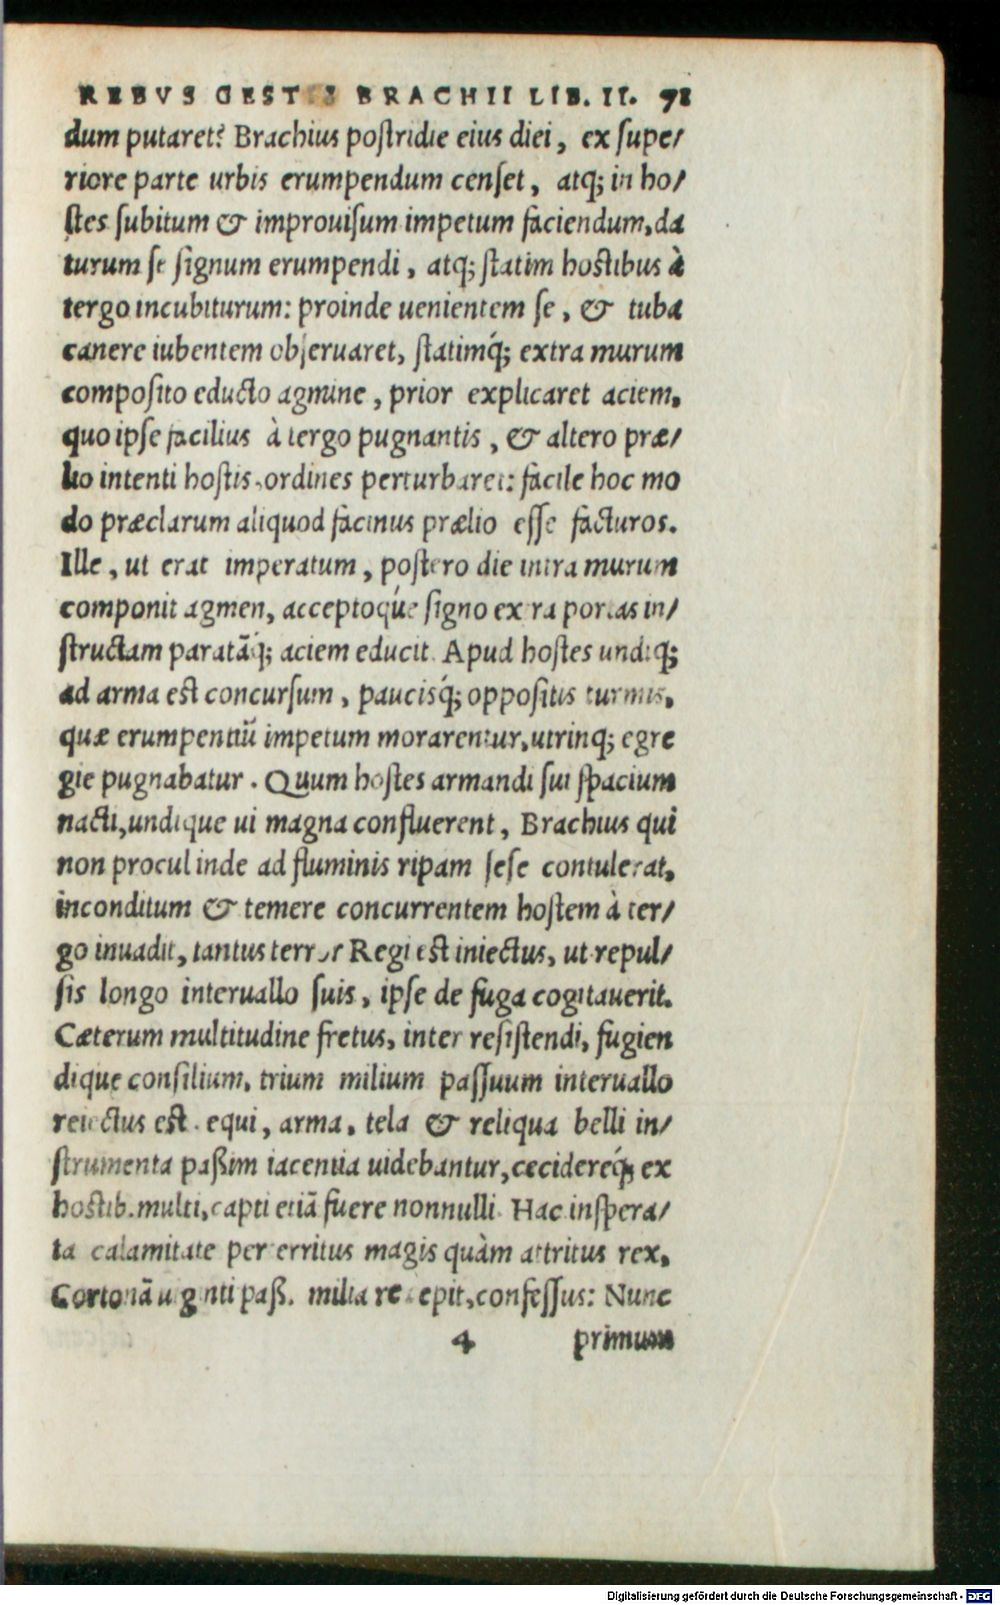 REBVS GESTIS BRACHII LIB. II. 71
dum putaret? Brachius postridie eius diei, ex supe/
riore parte urbis erumpendum censet, atq; in ho/
stes subitum & improuisum impetum faciendum, da
turum se signum erumpendi, atq; statim hostibus à
tergo incubiturum: proinde uenientem se, & tuba
canere iubentem obseruaret, statimq́; extra murum
composito educto agmine, prior explicaret aciem,
quo ipse facilius à tergo pugnantis, & altero præ/
lio intenti hostis, ordines perturbaret: facile hoc mo
do præclarum aliquod facinus prælio esse facturos.
Ille, ut erat imperatum, postero die intra murum
componit agmen, acceptoqúe signo extra portas in/
structam paratãq́; aciem educit. Apud hostes undiq;
ad arma est concursum, paucisq́; oppositis turmis,
quæ erumpentiũ impetum morarentur, utrinq; egre
gie pugnabatur. Quum hostes armandi sui spacium
nacti, undique ui magna confluerent, Brachius qui
non procul inde ad fluminis ripam sese contulerat,
inconditum & temere concurrentem hostem à ter/
go inuadit, tantus terror Regi est iniectus, ut repul/
sis longo interuallo suis, ipse de fuga cogitauerit.
Cæterum multitudine fretus, inter resistendi, fugien
dique consilium, trium milium passuum interuallo
reiectus est. equi, arma, tela & reliqua belli in/
strumenta paßim iacentia uidebantur, cecidereq́; ex
hostib. multi, capti etiã fuere nonnulli. Hac inspera/
ta calamitate perterritus magis quàm attritus rex,
Cortonã uiginti paß. milia recepit, confessus: Nunc
4 primum
Digitalisierung gefördert durch die Deutsche Forschungsgemeinschaft - DFG